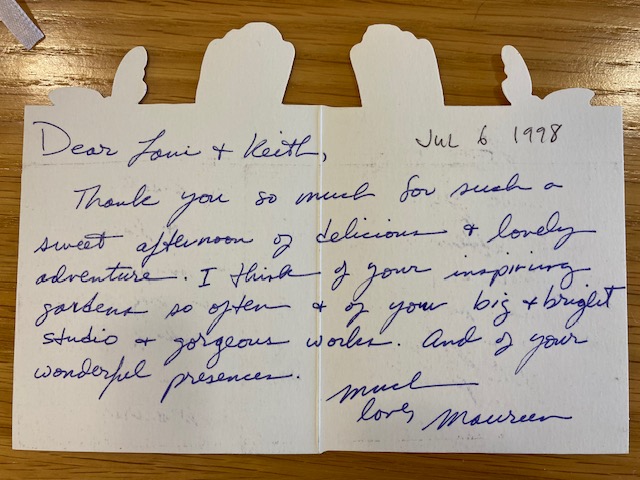 Jul 6 1998
Dear Loui + Keith,
Thank you so much for such a
sweet afternoon of delicious + lovely
adventure. I think of your inspiring
gardens so often + of your big + bright
studio + gorgeous works. And of your
wonderful presences.
Much
love, Maureen